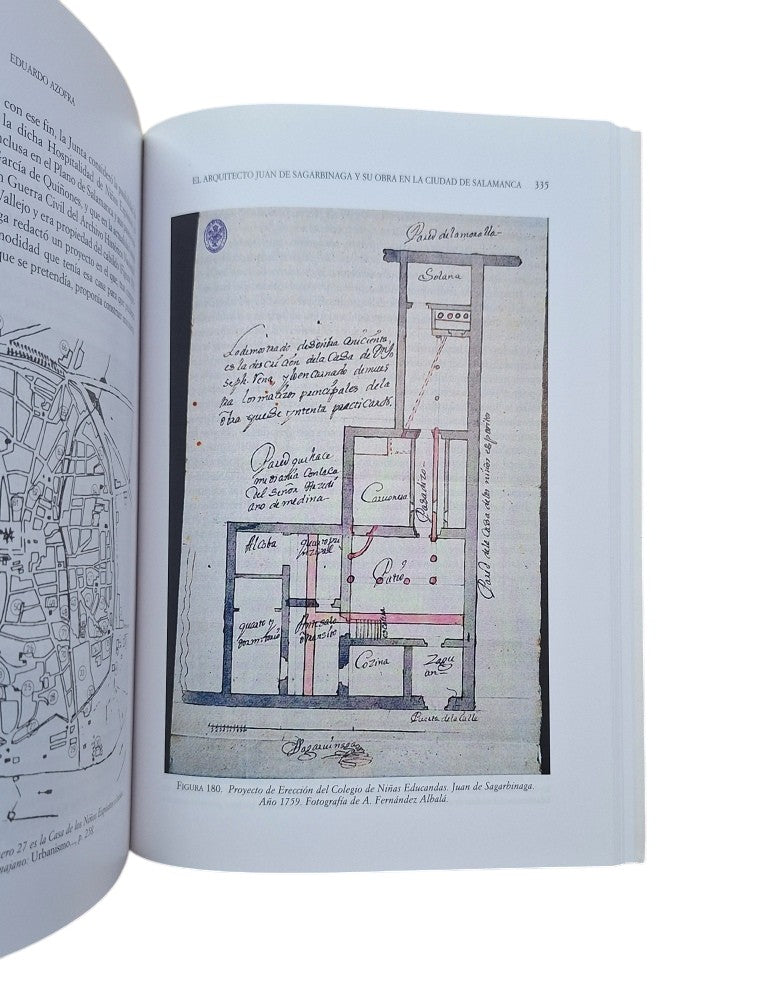 EDUARDO AZOFRA
con ese fin, la Junta consideró
la dicha Hospitalidad de
inclusa en el Plano de Salamanca
García de Quiñones, y que
Guerra Civil del Archivo
Vallejo y era propiedad del cabildo
redactó un proyecto en el que
comodidad que tenía esa casa para que
que se pretendía, proponía
27 es la Casa de los Niños
Urbanismo..., p. 258.
EL ARQUITECTO JUAN DE SAGARBINAGA Y SU OBRA EN LA CIUDAD DE SALAMANCA 335
Pared de la moralla
Solana
Lo demostrado de sonbra aniciento,
es la descrición de la Casa de Dn Jo
seph. Vena, y lo encarnado demues
tra los matizes prinçipales de la
obra que se yntenta practicarse.
Pared que haçe
mediania con la ca
del Señor Rezedi
ano de medina
Carvonera
Pasadizo
Pared de la Casa de los niños esposito
Alcoba
quarto prinzipall
Patio
quarto y
dormitorio
Antesala
o transito
Cozina
Zagu
an
Puerta de la Calle
Sagarvinaga
FIGURA 180. Proyecto de Erección del Colegio de Niñas Educandas. Juan de Sagarbinaga.
Año 1759. Fotografía de A. Fernández Albalá.